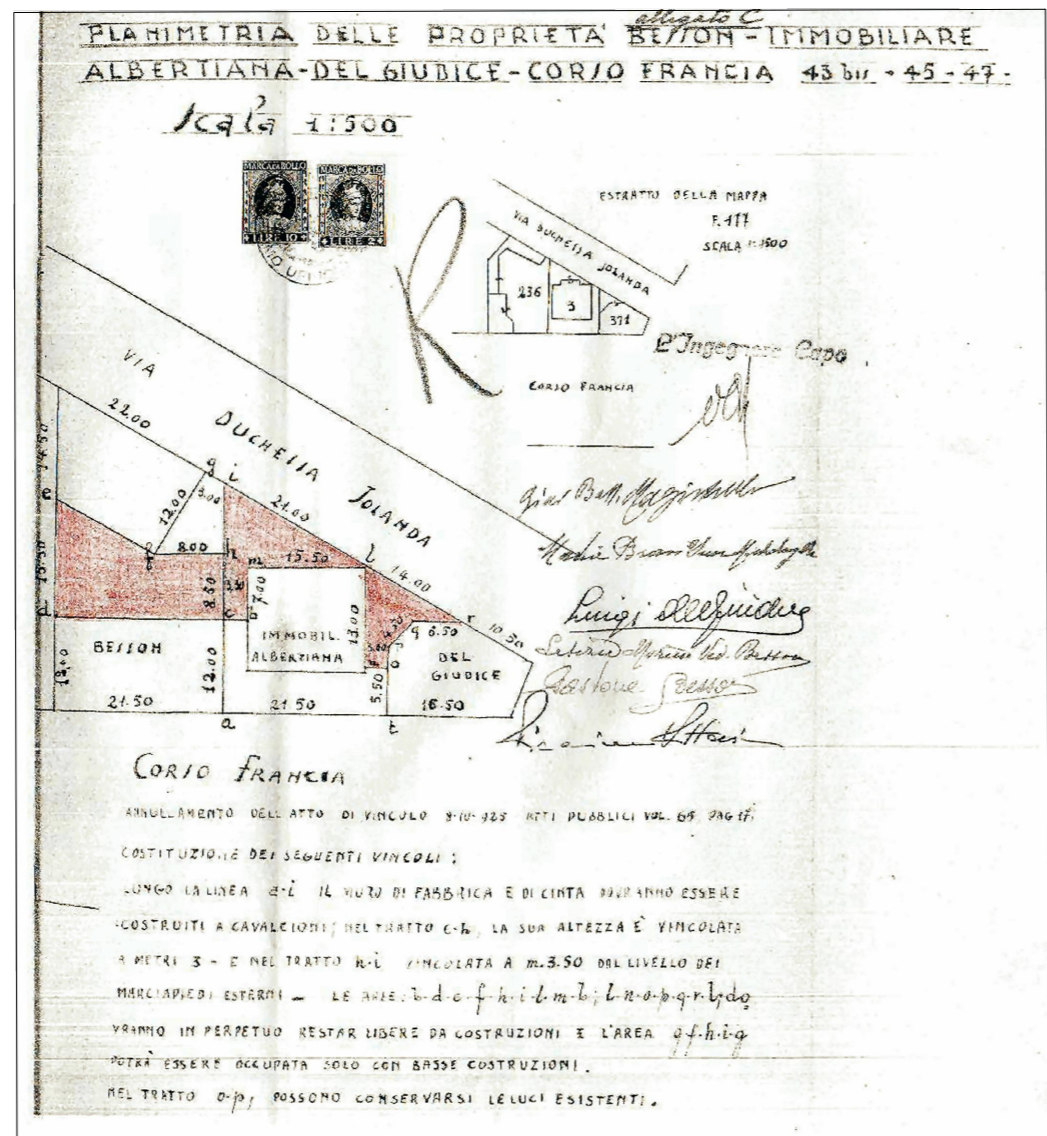 allegato C
PLANIMETRIA DELLE PROPRIETÀ BESSON-IMMOBILIARE
ALBERTIANA-DEL GIUDICE-CORSO FRANCIA 43 bis - 45 - 47-
Scala 1:500
MARCA DA BOLLO
LIRE 10
MARCA DA BOLLO
LIRE 2
R
ESTRATTO DELLA MAPPA
F. 177
SCALA 1:1500
VIA DUCHESSA JOLANDA
236
3
371
CORSO FRANCIA
L'Ingegnere Capo
VIA DUCHESSA JOLANDA
22.00
14.50
g i
3.00
21.00
e
12.00
f
8.00
h
m
15.50
l
14.00
15.50
8.50
3.50
7.00
13.00
d
c
b
q 6.50
r
10.50
BESSON
IMMOBIL.
ALBERTIANA
DEL
GIUDICE
o
12.00
5.50
21.50
21.50
16.50
a
t
Luigi Del Giudice
Ved. Besson
Besson
CORSO FRANCIA
ANNULLAMENTO DELL ATTO DI VINCOLO 9-10-925 ATTI PUBBLICI VOL. 65 PAG 17.
COSTITUZIONE DEI SEGUENTI VINCOLI:
LUNGO LA LINEA a-i IL MURO DI FABBRICA E DI CINTA DOVRANNO ESSERE
COSTRUITI A CAVALCIONI, NEL TRATTO c-h, LA SUA ALTEZZA È VINCOLATA
A METRI 3 - E NEL TRATTO h-i VINCOLATA A m. 3.50 DAL LIVELLO DEI
MARCIAPIEDI ESTERNI _ LE AREE: b-d-e-f-h-i-l-m-b; l-n-o-p-q-r-l; do
VRANNO IN PERPETUO RESTAR LIBERE DA COSTRUZIONI E L'AREA g-f-h-i-g
POTRÀ ESSERE OCCUPATA SOLO CON BASSE COSTRUZIONI.
NEL TRATTO o-p, POSSONO CONSERVARSI LE LUCI ESISTENTI.